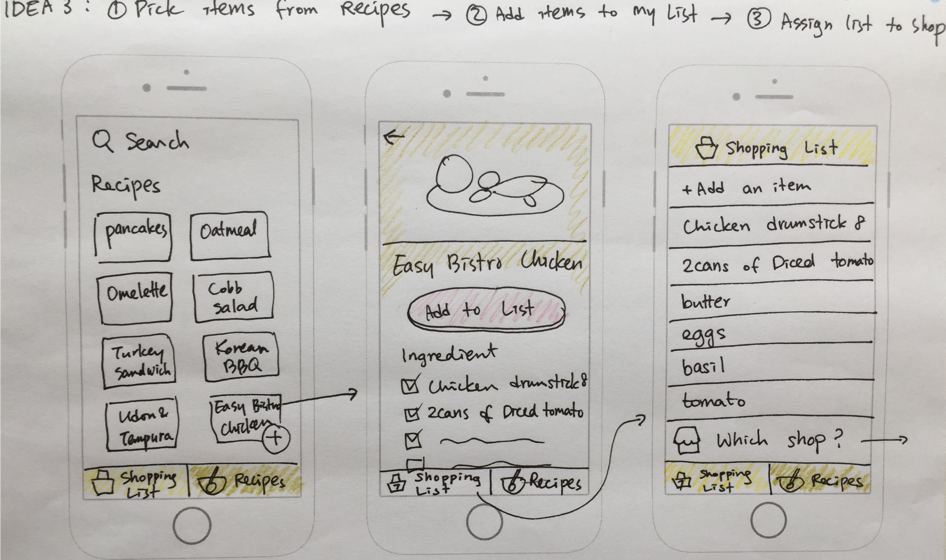 IDEA 3 : ① Pick items from Recipes → ② Add items to my List → ③ Assign list to shop
Search
Recipes
pancakes
Oatmeal
Omelette
Cobb
salad
Turkey
Sandwich
Korean
BBQ
Udon &
Tempura
Easy Bistro
Chicken
+
Shopping
List
Recipes
←
Easy Bistro Chicken
Add to List
Ingredient
Chicken drumstick 8
2cans of Diced tomato
Shopping
List
Recipes
Shopping List
+Add an item
Chicken drumstick 8
2cans of Diced tomato
butter
eggs
basil
tomato
Which shop? →
Shopping
List
Recipes